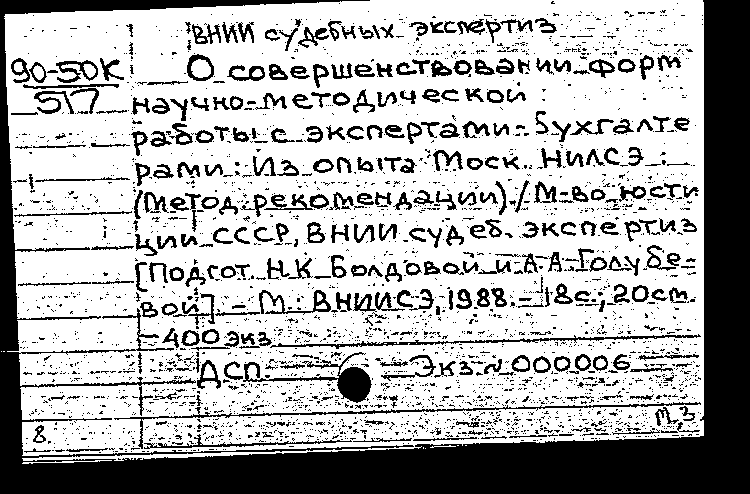 ВНИИ судебных экспертиз
90-50К
517
О совершенствовании форм
научно-методической
работы с экспертами-бухгалте
рами: Из опыта Моск. НИЛСЭ:
(Метод. рекомендации)./М-во юсти
ции СССР, ВНИИ судеб. экспертиз
[Подгот. Н.К. Болдовой и А.А. Голубе-
вой]. - М.: ВНИИСЭ, 1988. - 18с.; 20см.
- 400 экз
ДСП. Экз. № 000006
8. М, 3